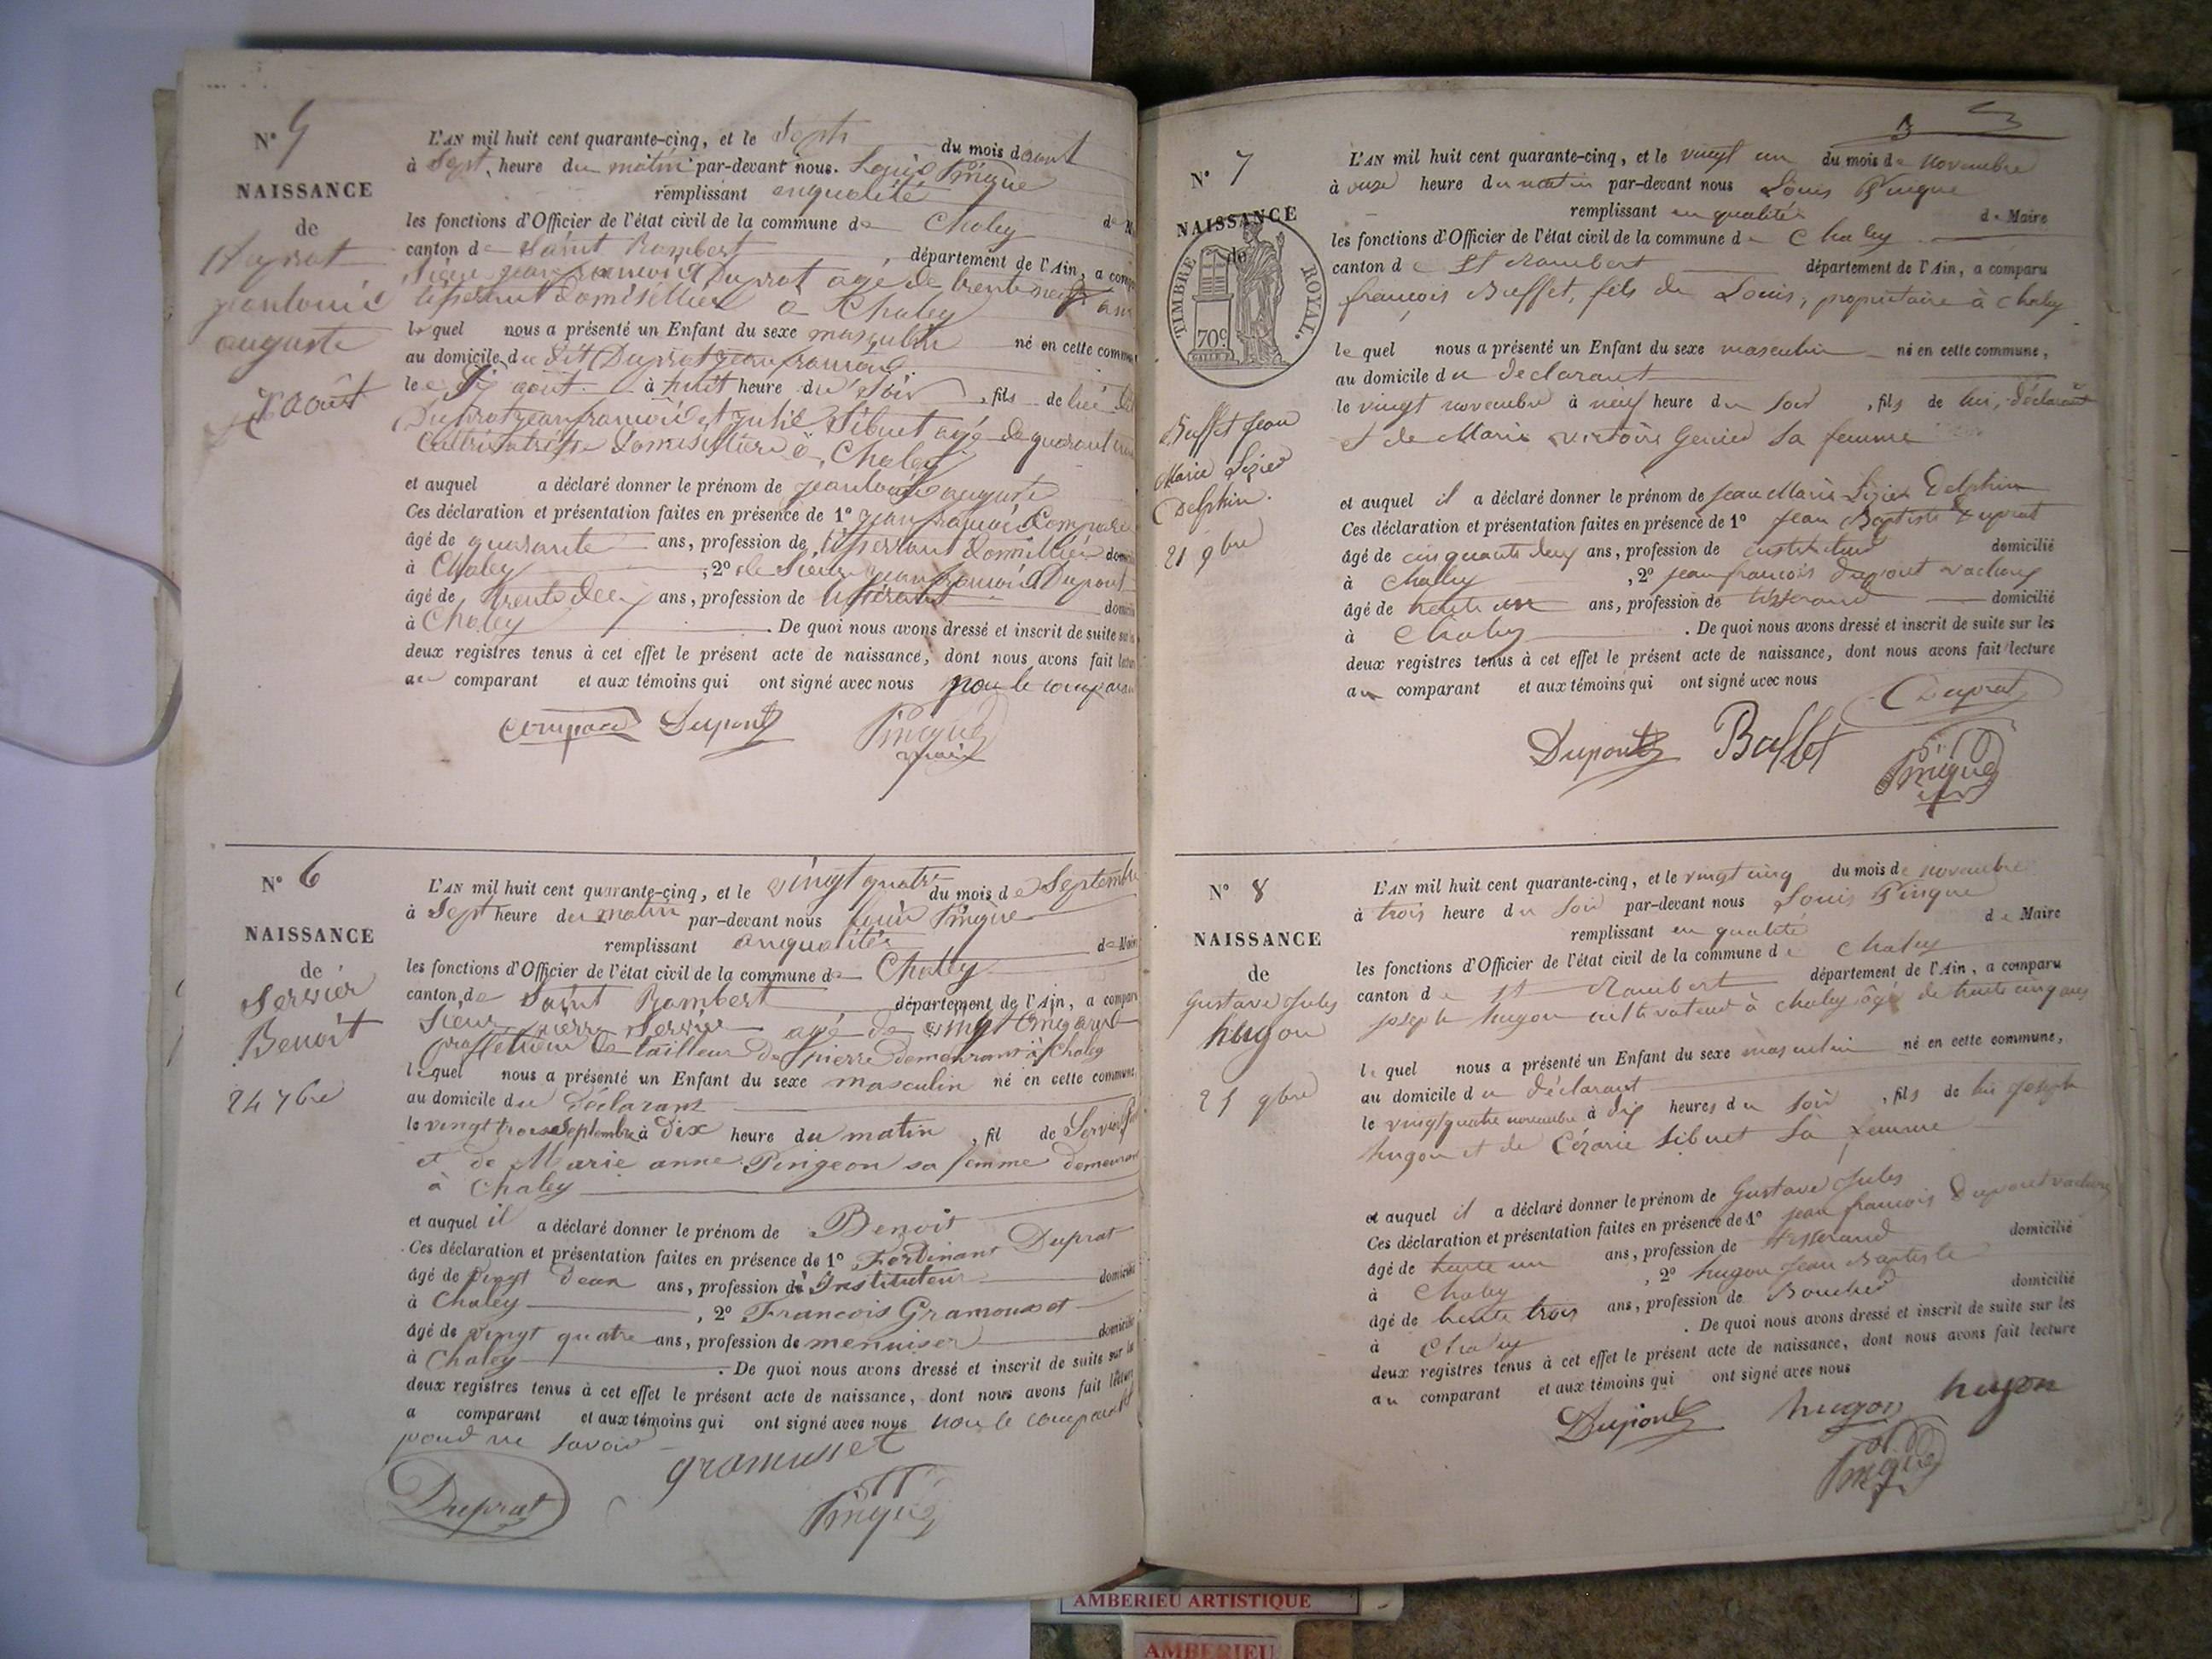 N° 5
NAISSANCE
de
Duprat
jean louis
auguste
7 août
L'AN mil huit cent quarante-cinq, et le Sept du mois d'aout
à Sept heure du matin par-devant nous. Louis Pingue
remplissant anqualité
les fonctions d'Officier de l'état civil de la commune de Chaley de
canton de Saint Rambert, département de l'Ain, a
Sieur jean francois Duprat agé de trente neuf ans
tisserant domisellier à Chaley
lequel nous a présenté un Enfant du sexe masqulin né en cette
au domicile du dit Duprat jean francois
le Six aout à huit heure du Soir, fils de lui dit
Duprat jean francois et julie Sibuet agé de quarant
Cultrivatrisse domisellière à Chaley
et auquel a déclaré donner le prénom de jean louis auguste
Ces déclaration et présentation faites en présence de 1° jean francois Compare
âgé de quarante ans, profession de tisserant domillier
à Chaley, 2° de Sieur jean francois Dupont
âgé de trente deux ans, profession de tisserant
à Chaley. De quoi nous avons dressé et inscrit de suite
deux registres tenus à cet effet le présent acte de naissance, dont nous avons fait
au comparant et aux témoins qui ont signé avec nous non le comparant
Compare Dupont Pingue
maire
N° 6
NAISSANCE
de
Servier
Benoit
24 7bre
L'AN mil huit cent quarante-cinq, et le vingt quatre du mois de Septembre
à Sept heure du matin par-devant nous Louis Pingue
remplissant anqualité de Maire
les fonctions d'Officier de l'état civil de la commune de Chaley
canton de Saint Rambert département de l'Ain, a
Sieur pierre Servier agé de vingt cinq ans
proffession de tailleur de pierre demeurant à Chaley
lequel nous a présenté un Enfant du sexe masculin né en cette commune
au domicile du déclarant
le vingt trois Septembre à dix heure du matin, fil de Servier
et de Marie anne Pingeon sa femme demeurant
à Chaley
et auquel il a déclaré donner le prénom de Benoit
Ces déclaration et présentation faites en présence de 1° Ferdinant Duprat
âgé de vingt deux ans, profession d'Instituteur domicilié
à Chaley, 2° Francois Gramousset
âgé de vingt quatre ans, profession de menuiser domicilié
à Chaley. De quoi nous avons dressé et inscrit de suite sur les
deux registres tenus à cet effet le présent acte de naissance, dont nous avons fait lecture
a comparant et aux témoins qui ont signé avec nous non le comparant
pour ne savoir
Duprat gramusset Pingue
N° 7
NAISSANCE
de
TIMBRE ROYAL.
70c
Buffet Jean
Marie Lizier
Delphin.
21 9bre
L'AN mil huit cent quarante-cinq, et le vingt un du mois de novembre
à onze heure du matin par-devant nous Louis Pingue
remplissant en qualité de Maire
les fonctions d'Officier de l'état civil de la commune de Chaley
canton de St Rambert département de l'Ain, a comparu
françois Buffet, fils de Louis, propriétaire à Chaley
lequel nous a présenté un Enfant du sexe masculin né en cette commune,
au domicile du declarant
le vingt novembre à neuf heure du soir, fils de lui, déclarant
et de Marie victoire Genied sa femme
et auquel il a déclaré donner le prénom de Jean Marie Lizier Delphin
Ces déclaration et présentation faites en présence de 1° Jean Baptiste Duprat
âgé de cinquante deux ans, profession de instituteur domicilié
à Chaley, 2° jean francois dupont vachony
âgé de trente un ans, profession de tisserand domicilié
à Chaley. De quoi nous avons dressé et inscrit de suite sur les
deux registres tenus à cet effet le présent acte de naissance, dont nous avons fait lecture
au comparant et aux témoins qui ont signé avec nous
Duprat
Dupont Buffet Pingue
N° 8
NAISSANCE
de
Gustave Jules
hugon
25 9bre
L'AN mil huit cent quarante-cinq, et le vingt cinq du mois de novembre
à trois heure du soir par-devant nous Louis Pingue
remplissant en qualité de Maire
les fonctions d'Officier de l'état civil de la commune de Chaley
canton de St Rambert département de l'Ain, a comparu
joseph hugon cultivateur à Chaley âgé de trente cinq ans
lequel nous a présenté un Enfant du sexe masculin né en cette commune,
au domicile du déclarant
le vingt quatre novembre à dix heures du soir, fils de lui joseph
hugon et de Cézarie Sibuet sa femme
et auquel il a déclaré donner le prénom de Gustave Jules
Ces déclaration et présentation faites en présence de 1° jean francois Dupont vachony
âgé de trente un ans, profession de tisserand domicilié
à Chaley, 2° hugon Jean Baptiste
âgé de trente trois ans, profession de Boucher domicilié
à Chaley. De quoi nous avons dressé et inscrit de suite sur les
deux registres tenus à cet effet le présent acte de naissance, dont nous avons fait lecture
au comparant et aux témoins qui ont signé avec nous
Dupont hugon hugon
Pingue
AMBERIEU ARTISTIQUE
AMBERIEU